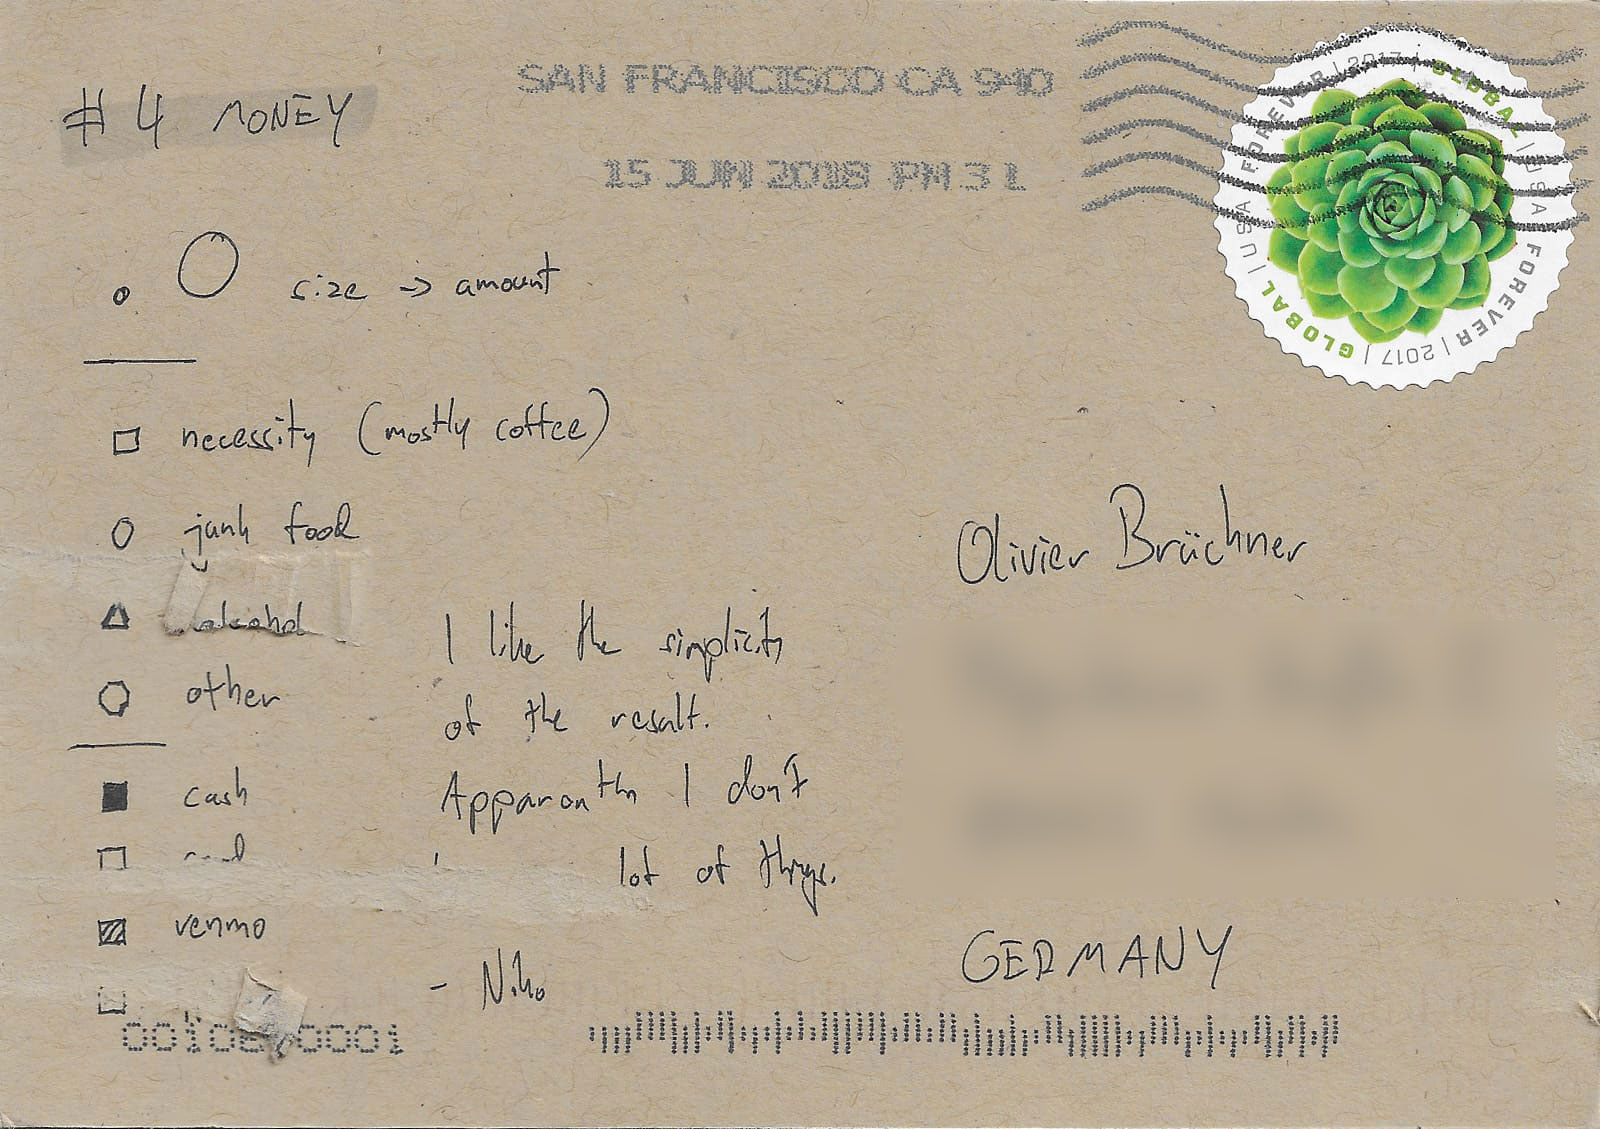 # 4 MONEY
SAN FRANCISCO CA 940
15 JUN 2018 PM 3 L
GLOBAL | USA FOREVER | 2017 | GLOBAL | USA FOREVER | 2017 |
size -> amount
necessity (mostly coffee)
junk food
alcohol
other
cash
venmo
I like the simplicity
of the result.
Apparently I don't
lot of things.
- Niko
Olivier Brückner
GERMANY